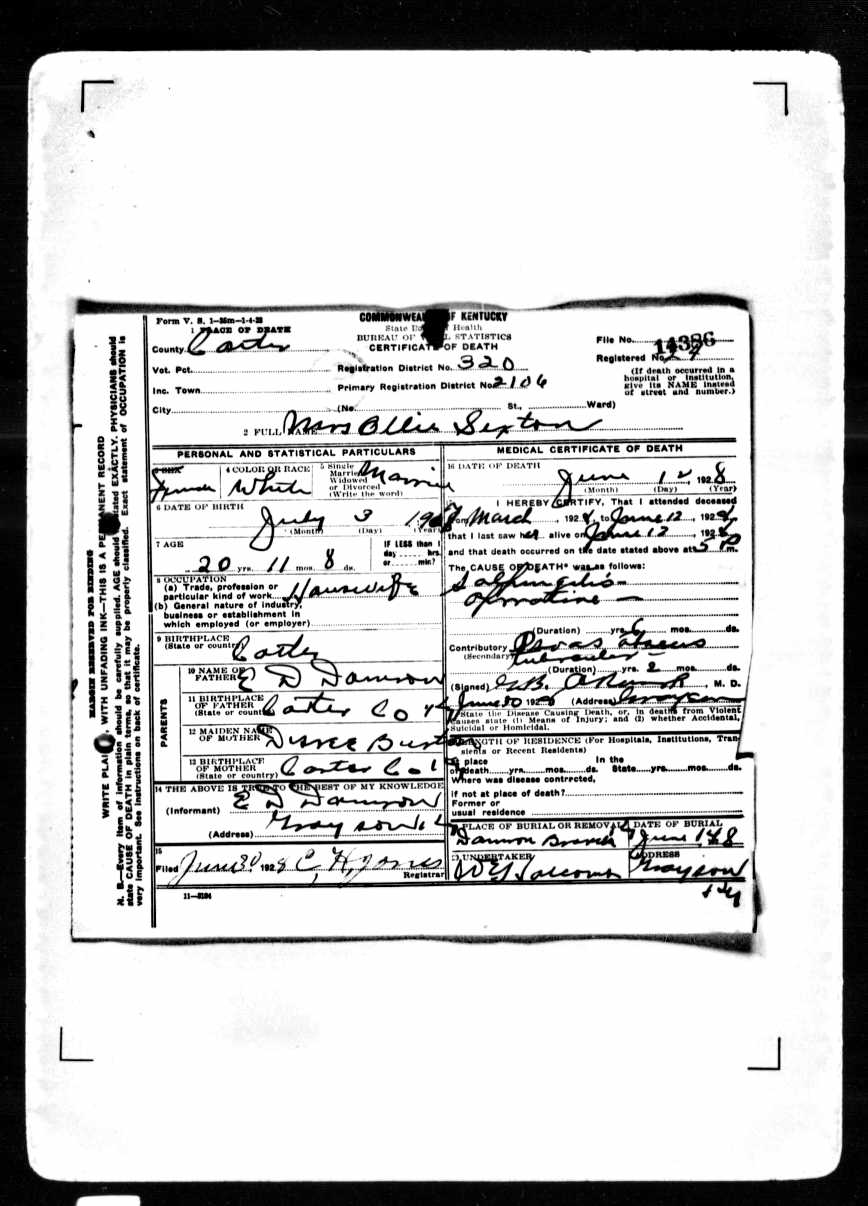 Form V. S. 1—35m—1-4-28
COMMONWEA OF KENTUCKY
State Health
BUREAU OF STATISTICS
CERTIFICATE OF DEATH
1 PLACE OF DEATH
County Carter
File No. 14386
Registered No.
Vot. Pct.
Registration District No. 320
(If death occurred in a
hospital or institution,
give its NAME instead
of street and number.)
Inc. Town
Primary Registration District No. 2106
City (No. St., Ward)
2 FULL NAME Mrs Ollie Sexton
PERSONAL AND STATISTICAL PARTICULARS
3 SEX
Female
4 COLOR OR RACE
White
5 Single
Married
Widowed
or Divorced
(Write the word)
6 DATE OF BIRTH
July 3
(Month) (Day) (Year)
7 AGE
20 yrs. 11 mos. 8 ds.
IF LESS than 1
day hrs.
or min.?
8 OCCUPATION
(a) Trade, profession or
particular kind of work Housewife
(b) General nature of industry,
business or establishment in
which employed (or employer)
9 BIRTHPLACE
(State or country) Carter
PARENTS
10 NAME OF
FATHER E D Damron
11 BIRTHPLACE
OF FATHER
(State or country) Carter Co
12 MAIDEN NAME
OF MOTHER
13 BIRTHPLACE
OF MOTHER
(State or country) Carter Co
14 THE ABOVE IS TRUE TO THE BEST OF MY KNOWLEDGE
(Informant) E D Damron
(Address) Grayson
15
Filed June 30 1928 C. H. Jones
Registrar
11—3184
MEDICAL CERTIFICATE OF DEATH
16 DATE OF DEATH
June 12, 1928
(Month) (Day) (Year)
I HEREBY CERTIFY, That I attended deceased
from March, 192 , to June 12, 192
that I last saw her alive on June 12, 192
and that death occurred on the date stated above at 5 P m.
The CAUSE OF DEATH* was as follows:
Salpingitis
(Duration) yrs. 6 mos. ds.
Contributory Psoas abscess
(Secondary)
(Duration) yrs. 2 mos. ds.
(Signed) M. D.
June 30 192 (Address) Grayson
*State the Disease Causing Death, or, in deaths from Violent
Causes state (1) Means of Injury; and (2) whether Accidental,
Suicidal or Homicidal.
LENGTH OF RESIDENCE (For Hospitals, Institutions, Tran-
sients or Recent Residents)
At place In the
of death yrs. mos. ds. State yrs. mos. ds.
Where was disease contrected,
if not at place of death?
Former or
usual residence
PLACE OF BURIAL OR REMOVAL
Damron Branch
DATE OF BURIAL
June
UNDERTAKER
ADDRESS
Grayson
Ky
MARGIN RESERVED FOR BINDING
WRITE PLAI , WITH UNFADING INK—THIS IS A PERMANENT RECORD
N. B.—Every item of information should be carefully supplied. AGE should stated EXACTLY. PHYSICIANS should
state CAUSE OF DEATH in plain terms, so that it may be properly classified. Exact statement of OCCUPATION is
very important. See instructions on back of certificate.